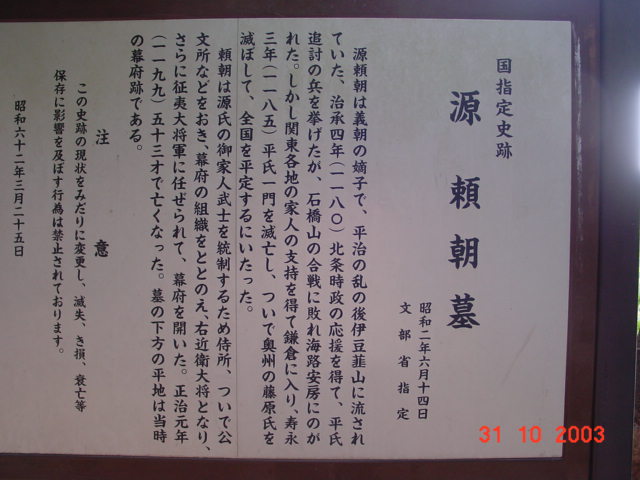 国指定史跡
源頼朝墓
昭和二年六月十四日
文部省指定
源頼朝は義朝の嫡子で、平治の乱の後伊豆韮山に流され
ていた、治承四年(一一八〇)北条時政の応援を得て、平氏
追討の兵を挙げたが、石橋山の合戦に敗れ海路安房にのが
れた。しかし関東各地の家人の支持を得て鎌倉に入り、寿永
三年(一一八五)平氏一門を滅亡し、ついで奥州の藤原氏を
滅ぼして、全国を平定するにいたった。
頼朝は源氏の御家人武士を統制するため侍所、ついで公
文所などをおき、幕府の組織をととのえ、右近衛大将となり、
さらに征夷大将軍に任ぜられて、幕府を開いた。正治元年
(一一九九)五十三才で亡くなった。墓の下方の平地は当時
の幕府跡である。
注意
この史跡の現状をみだりに変更し、滅失、き損、衰亡等
保存に影響を及ぼす行為は禁止されております。
昭和六十二年三月二十五日
31 10 2003